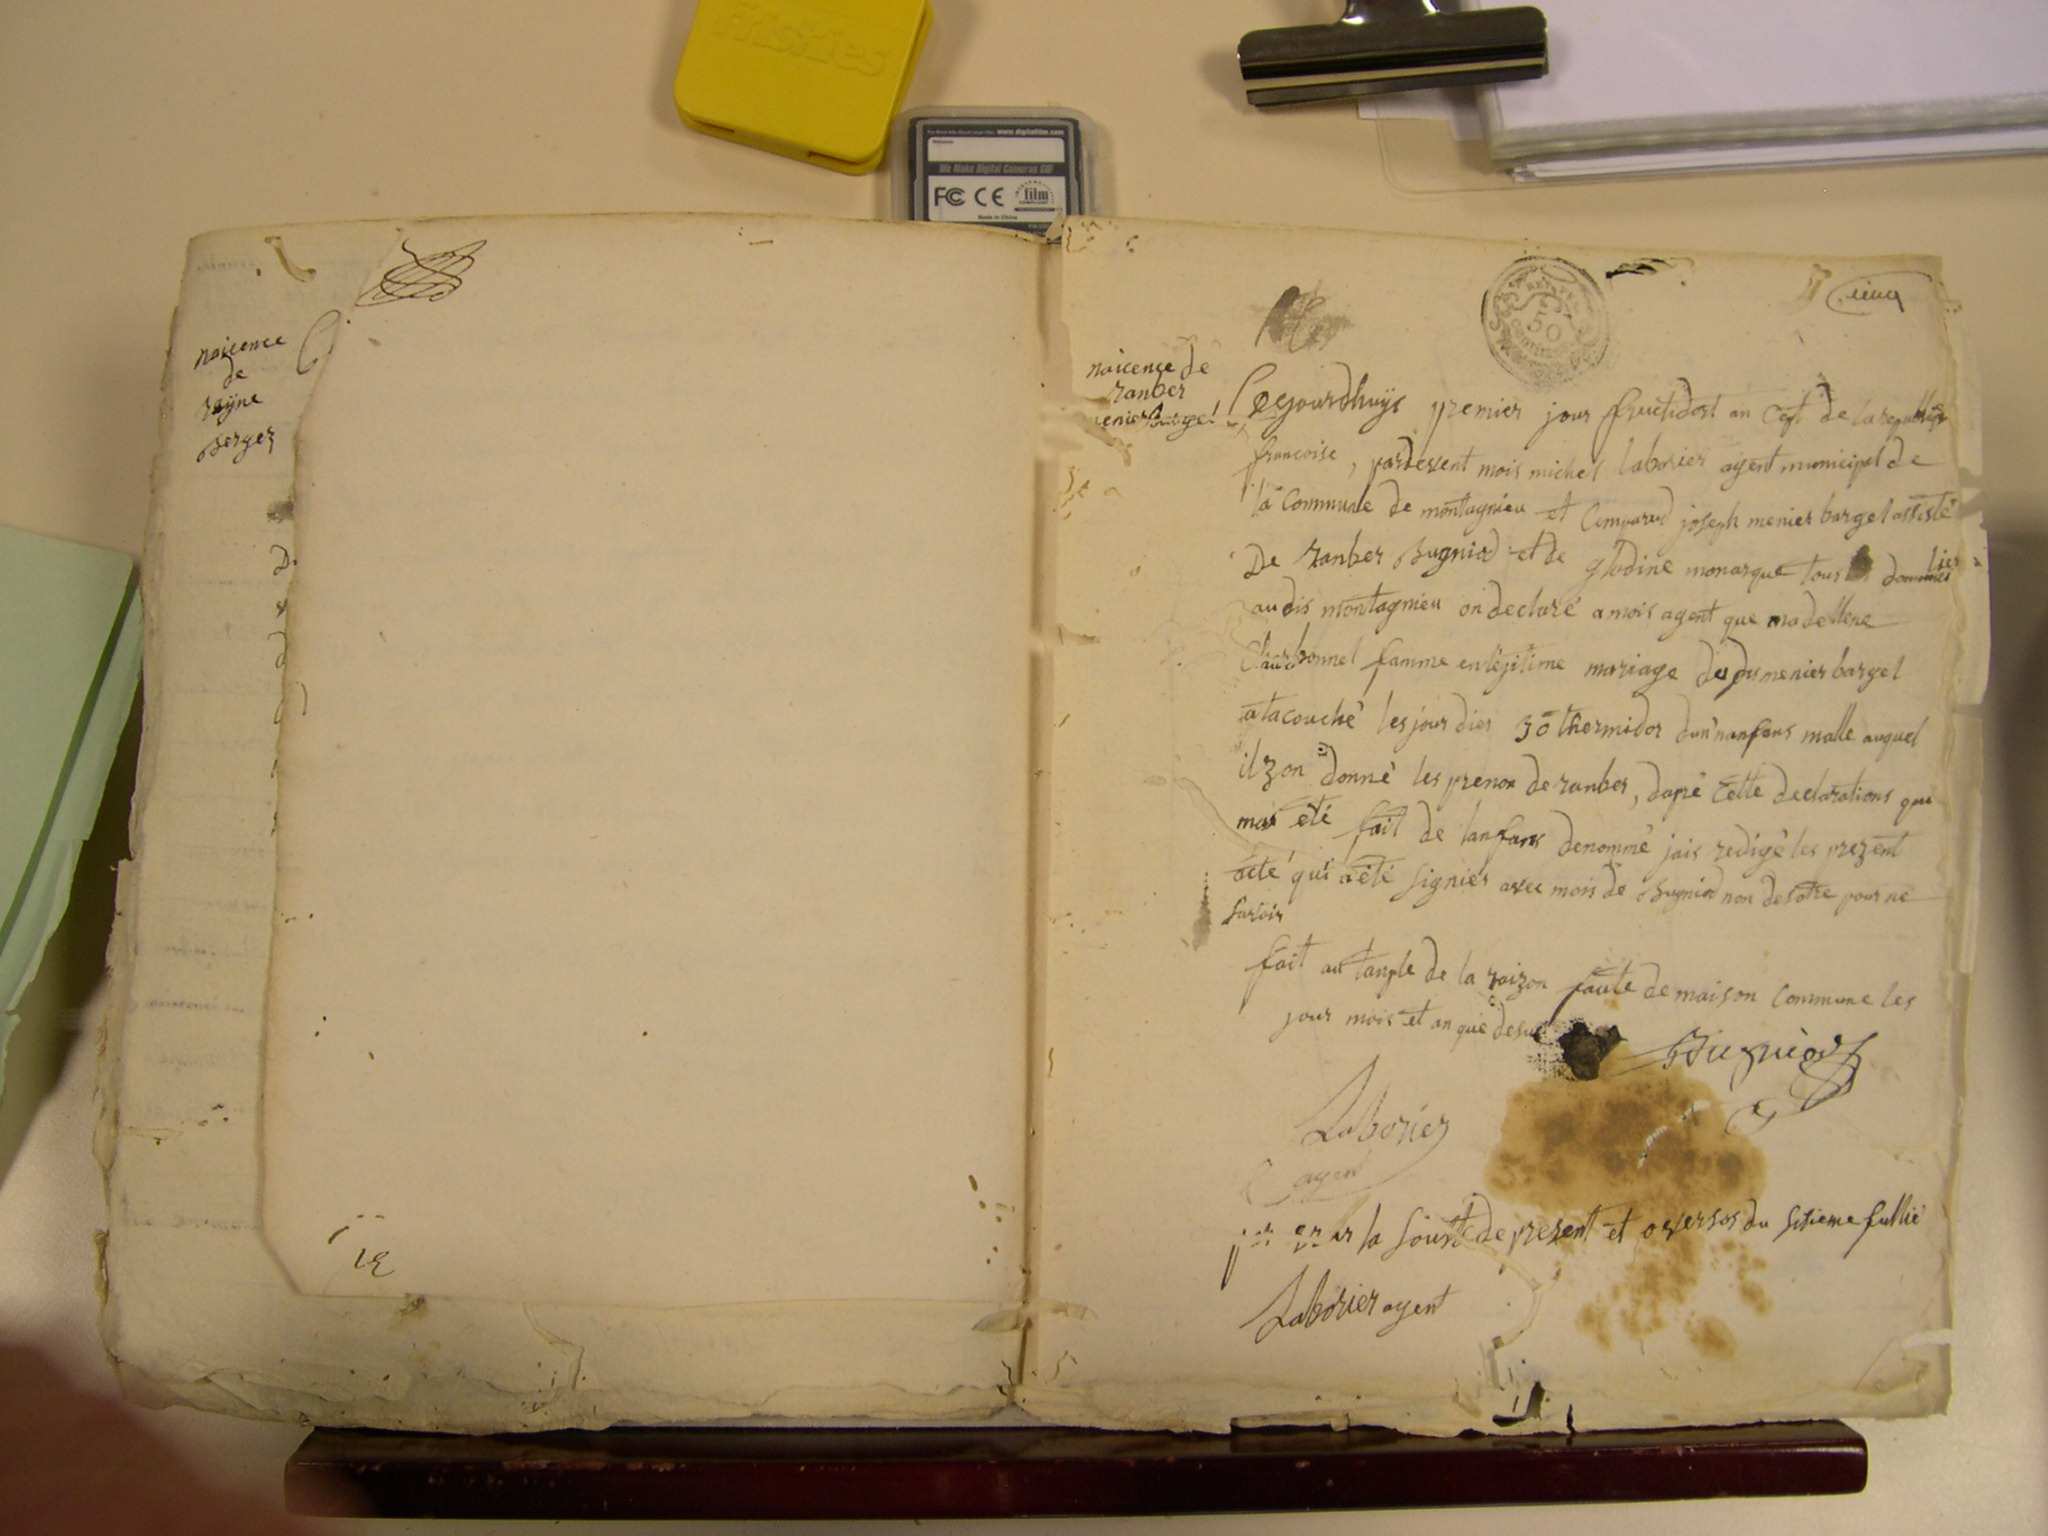 Fristies
www.digitalfilm.com
We Make Digital Cameras GO!
FC CE
film
Made in China
naicence
de
Berger
naicence de
ranber
menier bargel
50
cinq
Cejourdhuÿs premier jour fructidort an Cept de la republique
francoise, pardevent mois michel laborier agent municipal de
la Commune de montagnieu et Comparud joseph menier bargel assisté
De ranber Bugniod et de glodine monarque tous domiclies
audis montagnieu on declaré a mois agent que madellene
Charbonnel famme en légitime mariage du du menier bargel
atacouché les jour dier 30 thermidor dun nanfans malle auquel
il zon donné les prenon de ranber, dapré Cette declarations qui
mas été fait de lanfans denommé jais redigé les prezent
acté qui a été signier avec mois de Bugniod non de sotre pour ne
savoir
fait au tanple de la raizon faute de maison Commune les
jour mois et an que desus
Bugniod
Laborier
agen
la de prezent et oversos du sisieme fullié
Laborier agent